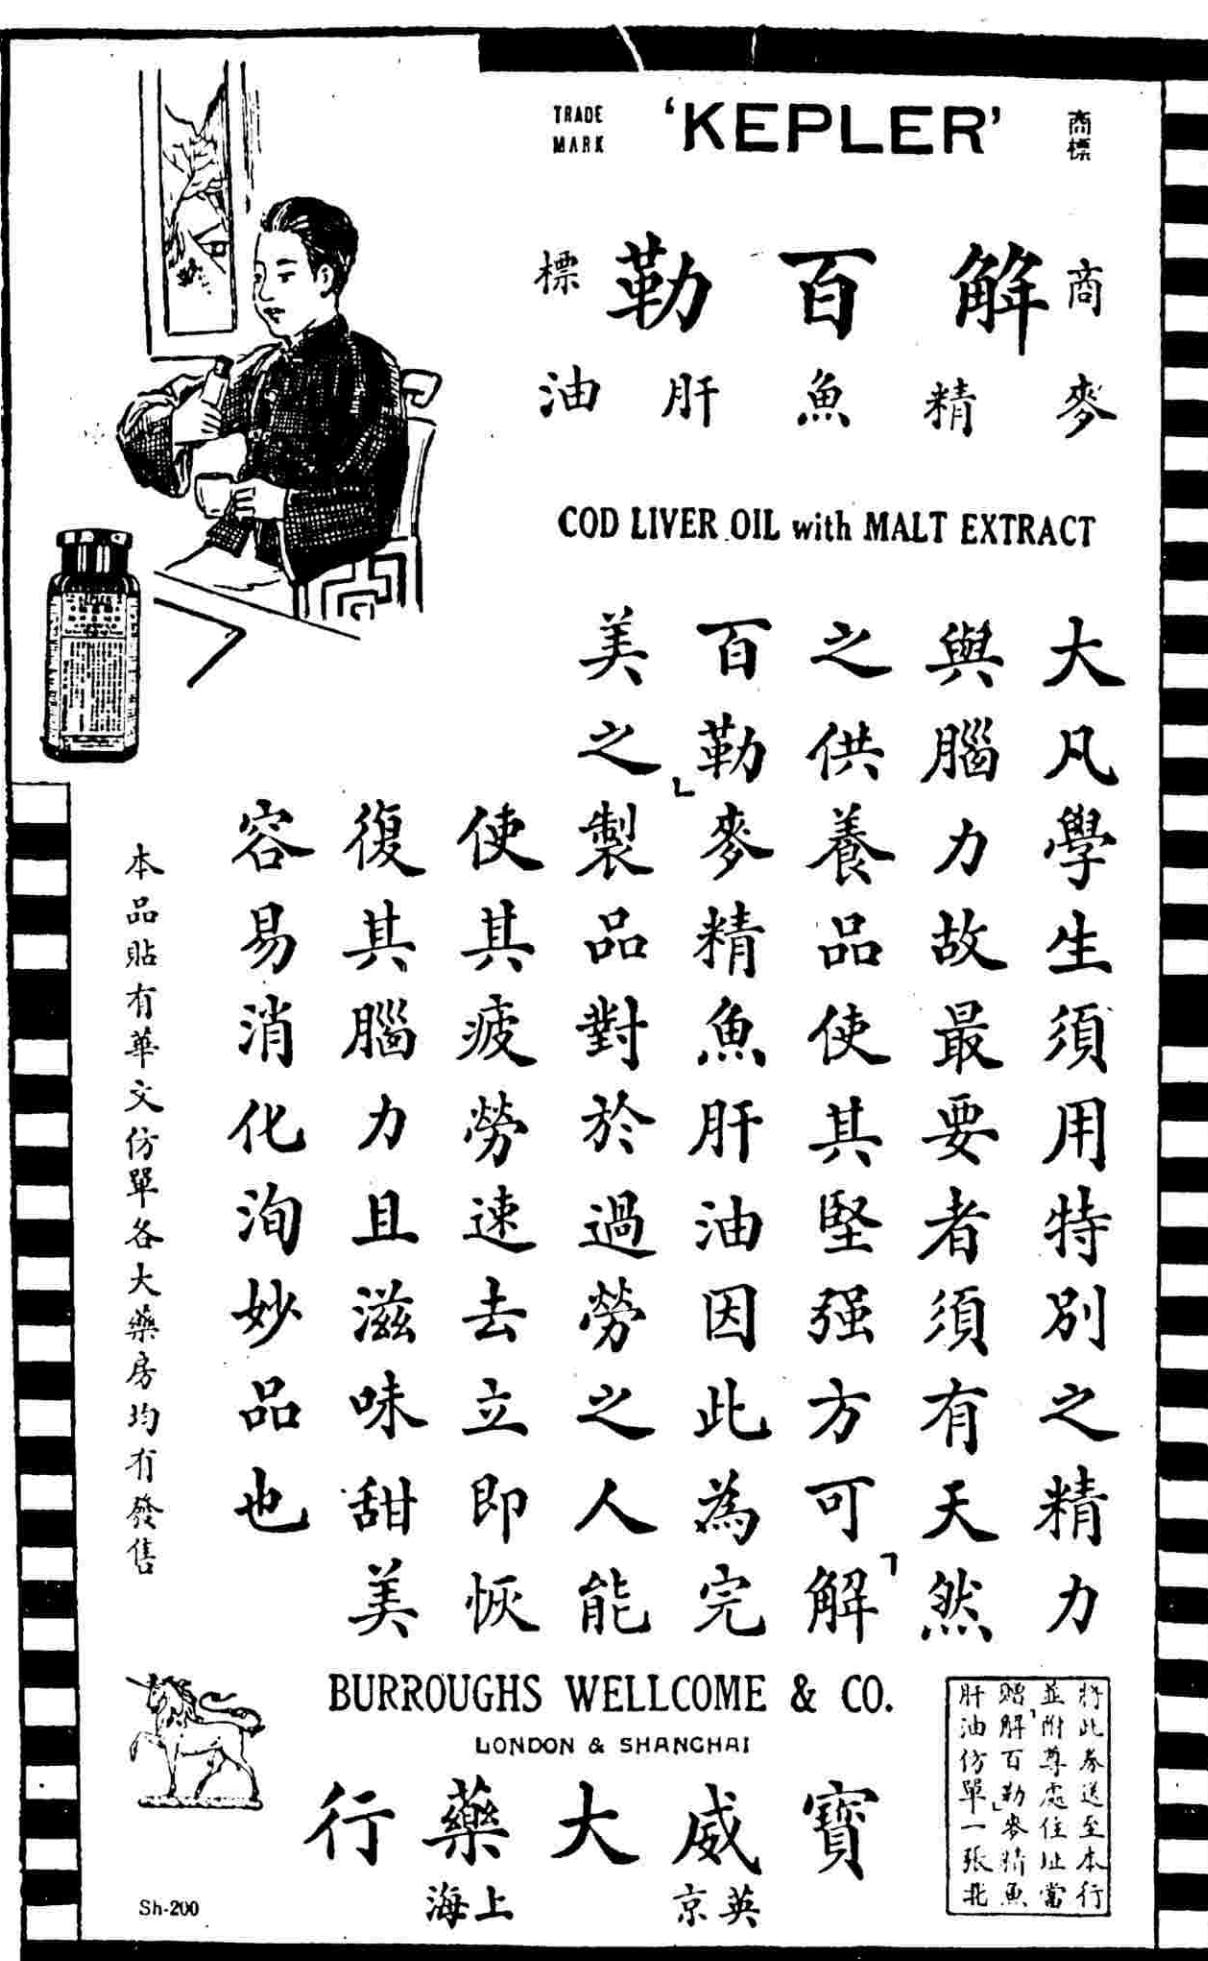 TRADE MARK 'KEPLER' 商標
商標 解百勒
麥精魚肝油
COD LIVER OIL with MALT EXTRACT
大凡學生須用特別之精力
與腦力故最要者須有天然
之供養品使其堅强方可「解
百勒」麥精魚肝油因此為完
美之製品對於過勞之人能
使其疲勞速去立即恢
復其腦力且滋味甜美
容易消化洵妙品也
本品貼有華文仿單各大藥房均有發售
BURROUGHS WELLCOME & CO.
LONDON & SHANGHAI
寶威大藥行
英京 上海
將此券送至本行
並附尊處住址當
贈「解百勒」麥精魚
肝油仿單一張北
Sh-200